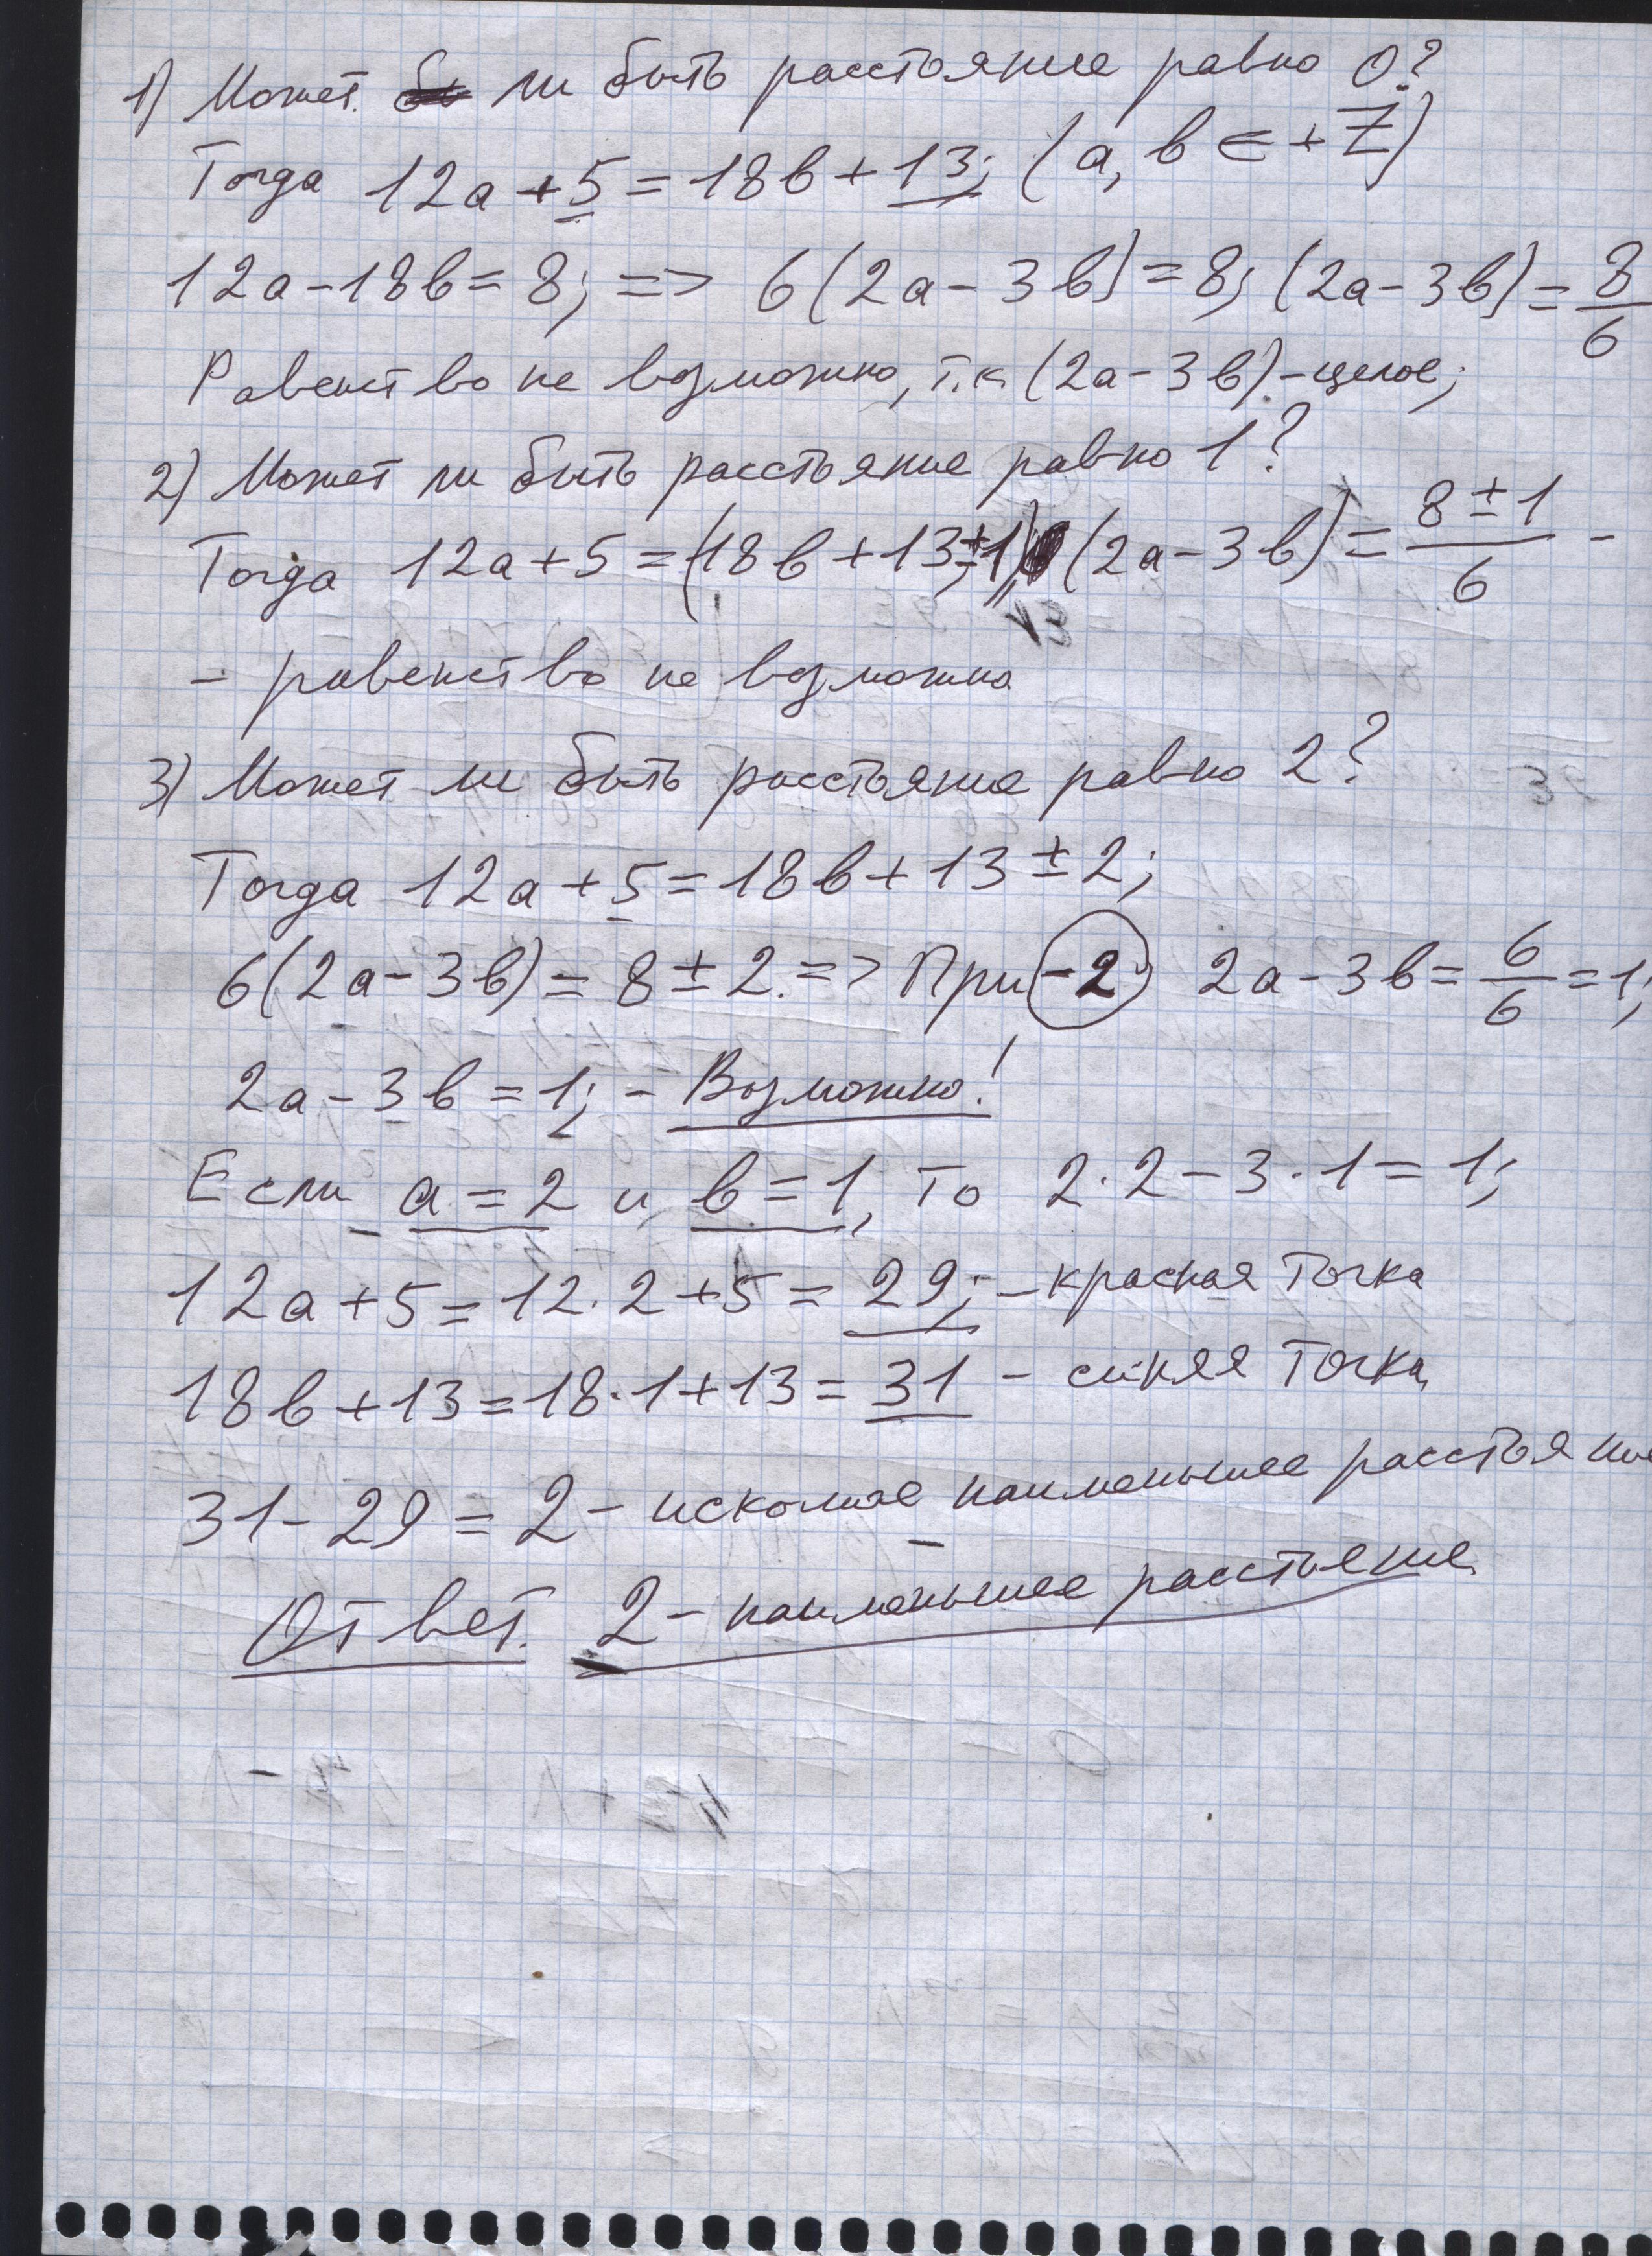 1) Может ли быть расстояние равно 0?
Тогда 12a + 5 = 18b + 13; (a, b ∈ + Z)
12a - 18b = 8; => 6(2a - 3b) = 8; (2a - 3b) = 8/6
Равенство не возможно, т.к. (2a - 3b) - целое;
2) Может ли быть расстояние равно 1?
Тогда 12a + 5 = (18b + 13 ± 1); (2a - 3b) = (8 ± 1)/6 -
- равенство не возможно
3) Может ли быть расстояние равно 2?
Тогда 12a + 5 = 18b + 13 ± 2;
6(2a - 3b) = 8 ± 2. => При -2 2a - 3b = 6/6 = 1;
2a - 3b = 1; - Возможно!
Если a = 2 и b = 1, то 2·2 - 3·1 = 1;
12a + 5 = 12·2 + 5 = 29; - красная точка
18b + 13 = 18·1 + 13 = 31 - синяя точка
31 - 29 = 2 - искомое наименьшее расстояние
Ответ. 2 - наименьшее расстояние